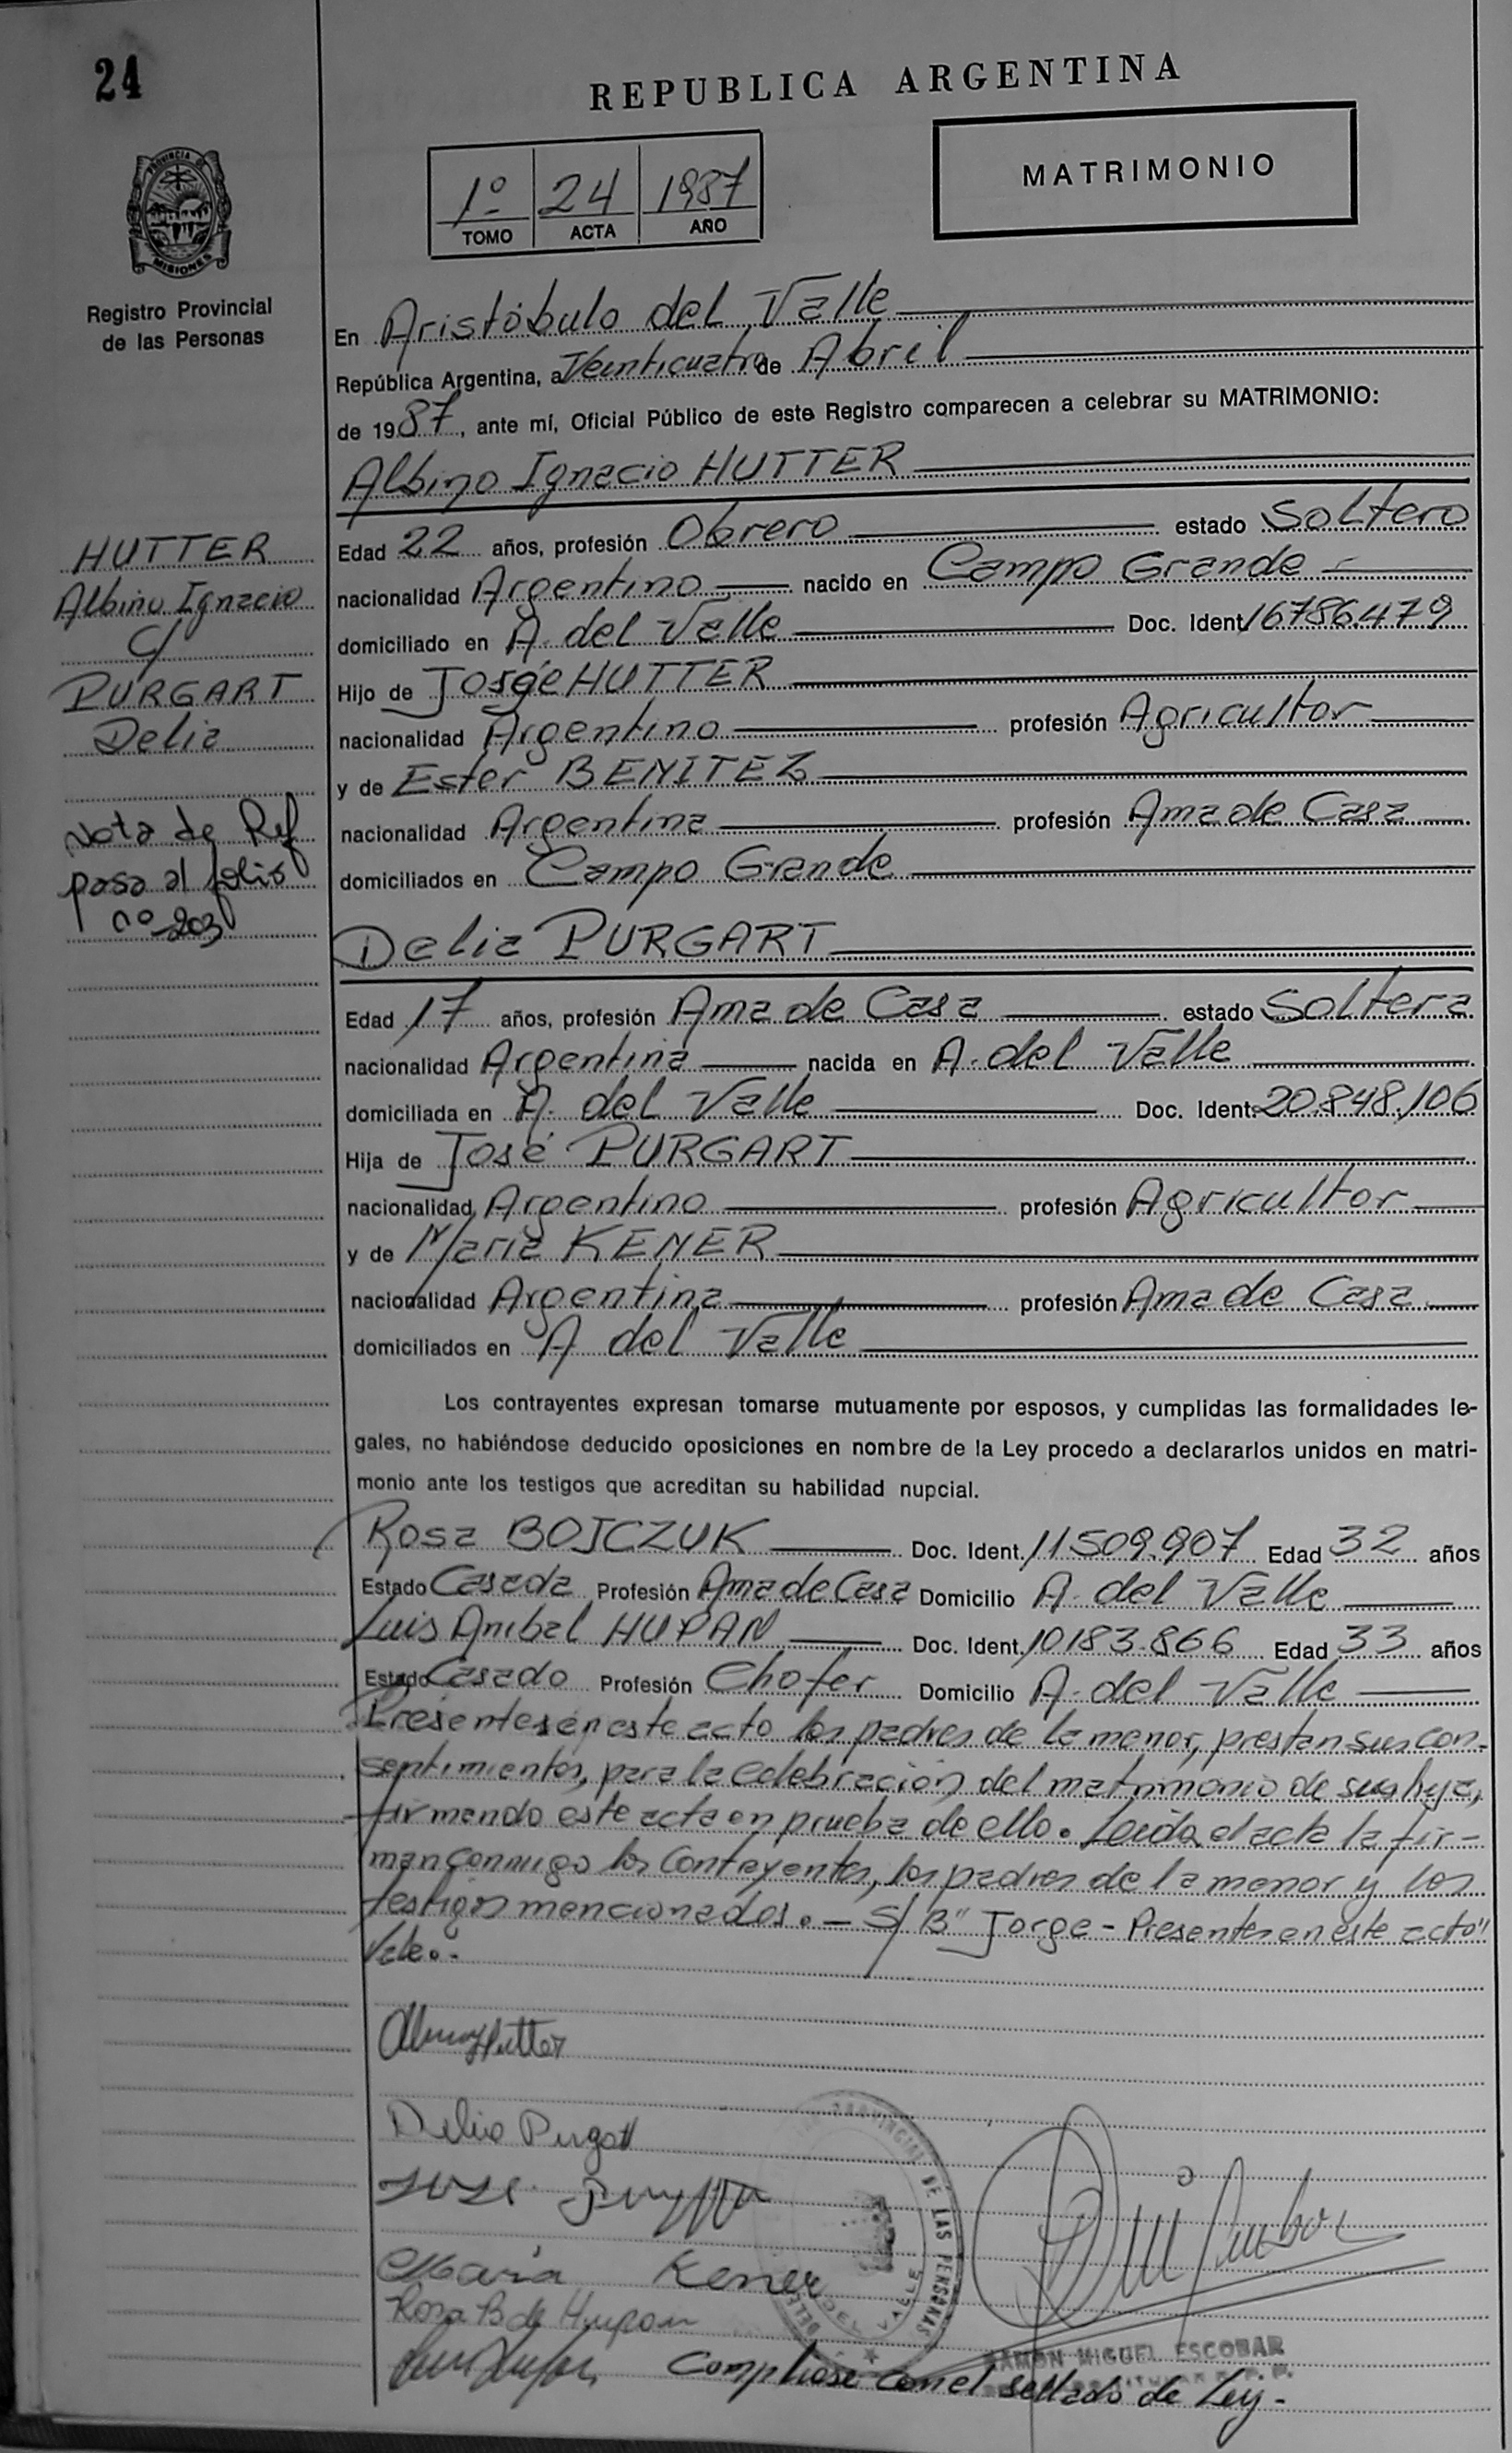 24
REPUBLICA ARGENTINA
MATRIMONIO
1º 24 1987
TOMO ACTA AÑO
PROVINCIA DE
MISIONES
Registro Provincial
de las Personas
En Aristóbulo del Valle
República Argentina, a Veinticuatro de Abril
de 1987, ante mí, Oficial Público de este Registro comparecen a celebrar su MATRIMONIO:
Albino Ignacio HUTTER
HUTTER
Albino Ignacio
C/
PURGART
Delia
Nota de Ref
pasa al folio
nº 203
Edad 22 años, profesión Obrero estado Soltero
nacionalidad Argentino nacido en Campo Grande
domiciliado en A. del Valle Doc. Ident. 16786.479
Hijo de Jorge HUTTER
nacionalidad Argentino profesión Agricultor
y de Ester BENITEZ
nacionalidad Argentina profesión Ama de Casa
domiciliados en Campo Grande
Delia PURGART
Edad 17 años, profesión Ama de Casa estado Soltera
nacionalidad Argentina nacida en A. del Valle
domiciliada en A. del Valle Doc. Ident. 20.848.106
Hija de José PURGART
nacionalidad Argentino profesión Agricultor
y de María KENER
nacionalidad Argentina profesión Ama de Casa
domiciliados en A del Valle
Los contrayentes expresan tomarse mutuamente por esposos, y cumplidas las formalidades le-
gales, no habiéndose deducido oposiciones en nombre de la Ley procedo a declararlos unidos en matri-
monio ante los testigos que acreditan su habilidad nupcial.
Rosa BOJCZUK Doc. Ident. 11509.907 Edad 32 años
Estado Casada Profesión Ama de Casa Domicilio A. del Valle
Luis Anibal HUPAN Doc. Ident. 10183.866 Edad 33 años
Estado Casado Profesión Chofer Domicilio A. del Valle
Presentes en este acto los padres de la menor, prestan sus con-
sentimientos, para la celebración del matrimonio de su hija,
firmando este acta en prueba de ello. Leida el acta la fir-
man conmigo los Conteyentes, los padres de la menor y los
testigos mencionados. — S/B" Jorge - Presentes en este acto"
Vale.-
Hutter
Delia Purgart
José
María Kener
Rosa B de Hupan
PROVINCIAL DE LAS PERSONAS
DEL VALLE
RAMON MIGUEL ESCOBAR
Complíose con el sellado de Ley.-